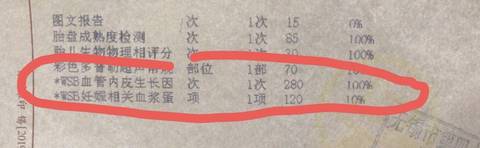 图文报告 次 1次 15 0%
胎盘成熟度检测 次 1次 85 100%
胎儿生物物理相评分 次 1次 30 100%
彩色多普勒超声常规 部位 1部 70 10%
*WSB血管内皮生长因 次 1次 280 100%
*WSB妊娠相关血浆蛋 项 1项 120 10%